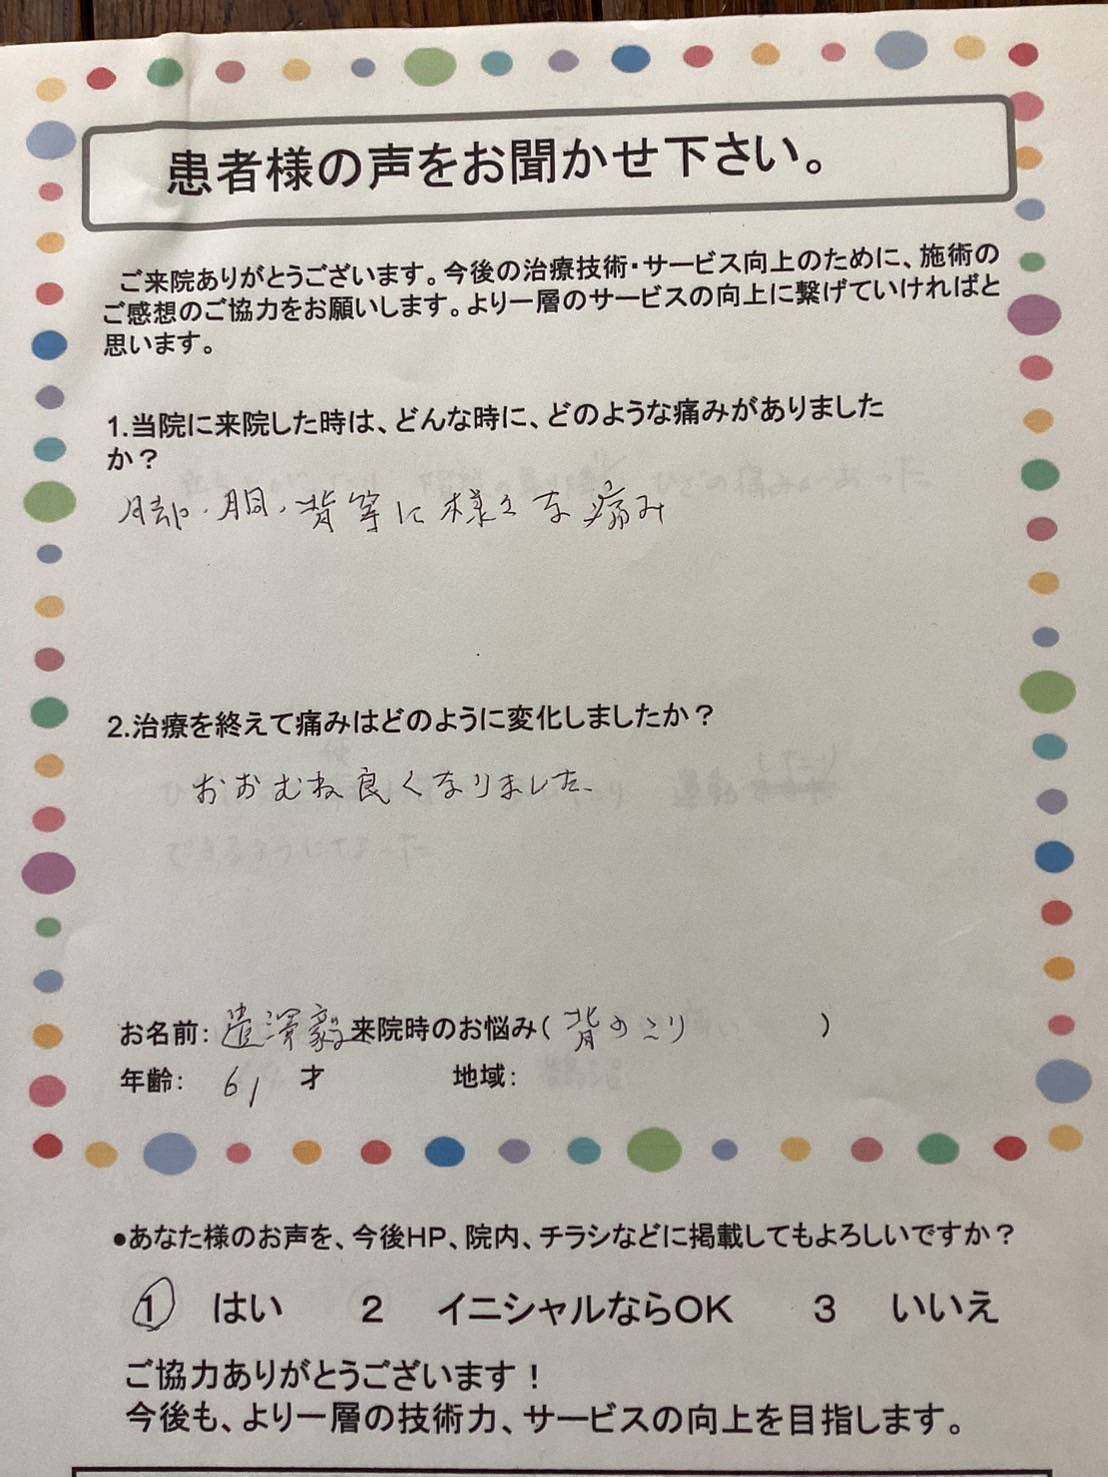 患者様の声をお聞かせ下さい。
ご来院ありがとうございます。今後の治療技術・サービス向上のために、施術の
ご感想のご協力をお願いします。より一層のサービスの向上に繋げていければと
思います。
1.当院に来院した時は、どんな時に、どのような痛みがありました
か？
背等に様々な痛み
2.治療を終えて痛みはどのように変化しましたか？
おおむね良くなりました
お名前： 来院時のお悩み（ 背のこり ）
年齢： 61 才 地域：
●あなた様のお声を、今後HP、院内、チラシなどに掲載してもよろしいですか？
1 はい 2 イニシャルならOK 3 いいえ
ご協力ありがとうございます！
今後も、より一層の技術力、サービスの向上を目指します。